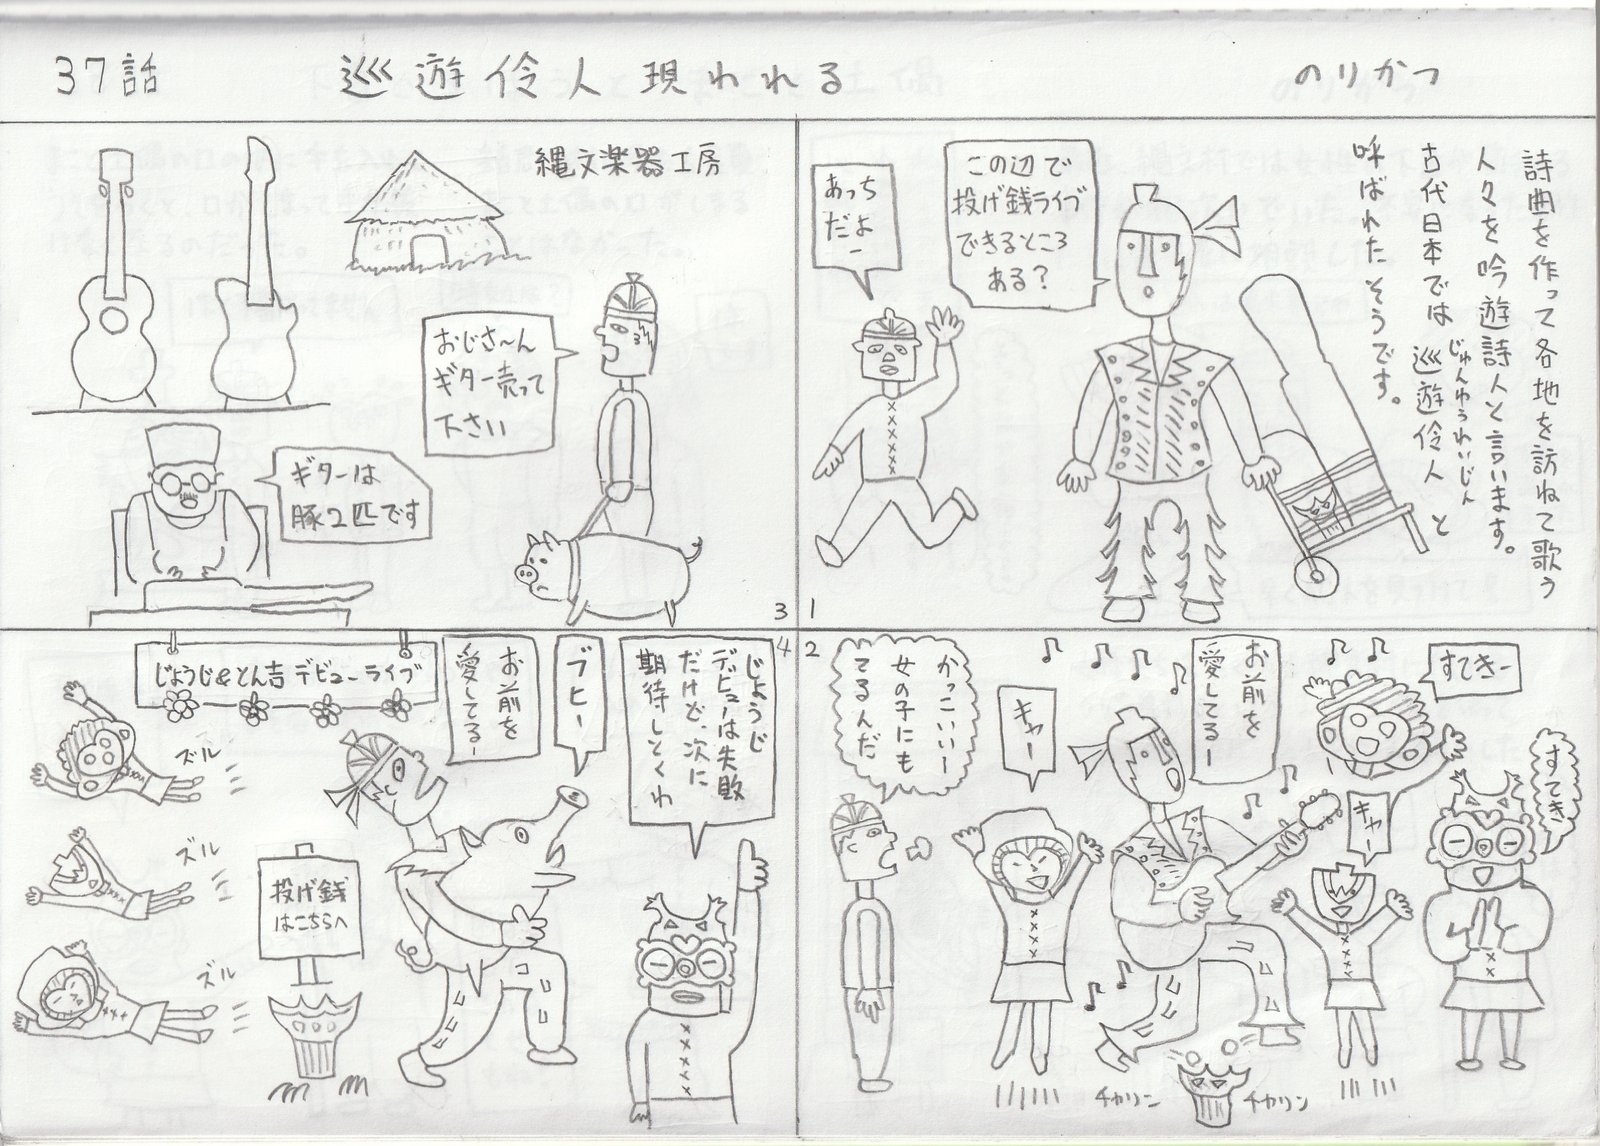 37話
巡遊伶人現われる
のりかつ
詩曲を作って各地を訪ねて歌う
人々を吟遊詩人と言います。
古代日本では巡遊伶人と
じゅんゆうれいじん
呼ばれたそうです。
この辺で
投げ銭ライブ
できるところ
ある?
あっち
だよー
1
2
すてきー
すてき
お前を
愛してるー
キャー
キャー
かっこいいー
女の子にも
てるんだ
チャリーン
チャリン
縄文楽器工房
おじさ〜ん
ギター売って
下さい
ギターは
豚2匹です
3
4
じょうじ
デビューは失敗
だけど、次に
期待しとくわ
ブヒー
お前を
愛してるー
じょうじ&とん吉デビューライブ
ズル
ズル
ズル
投げ銭
はこちらへ